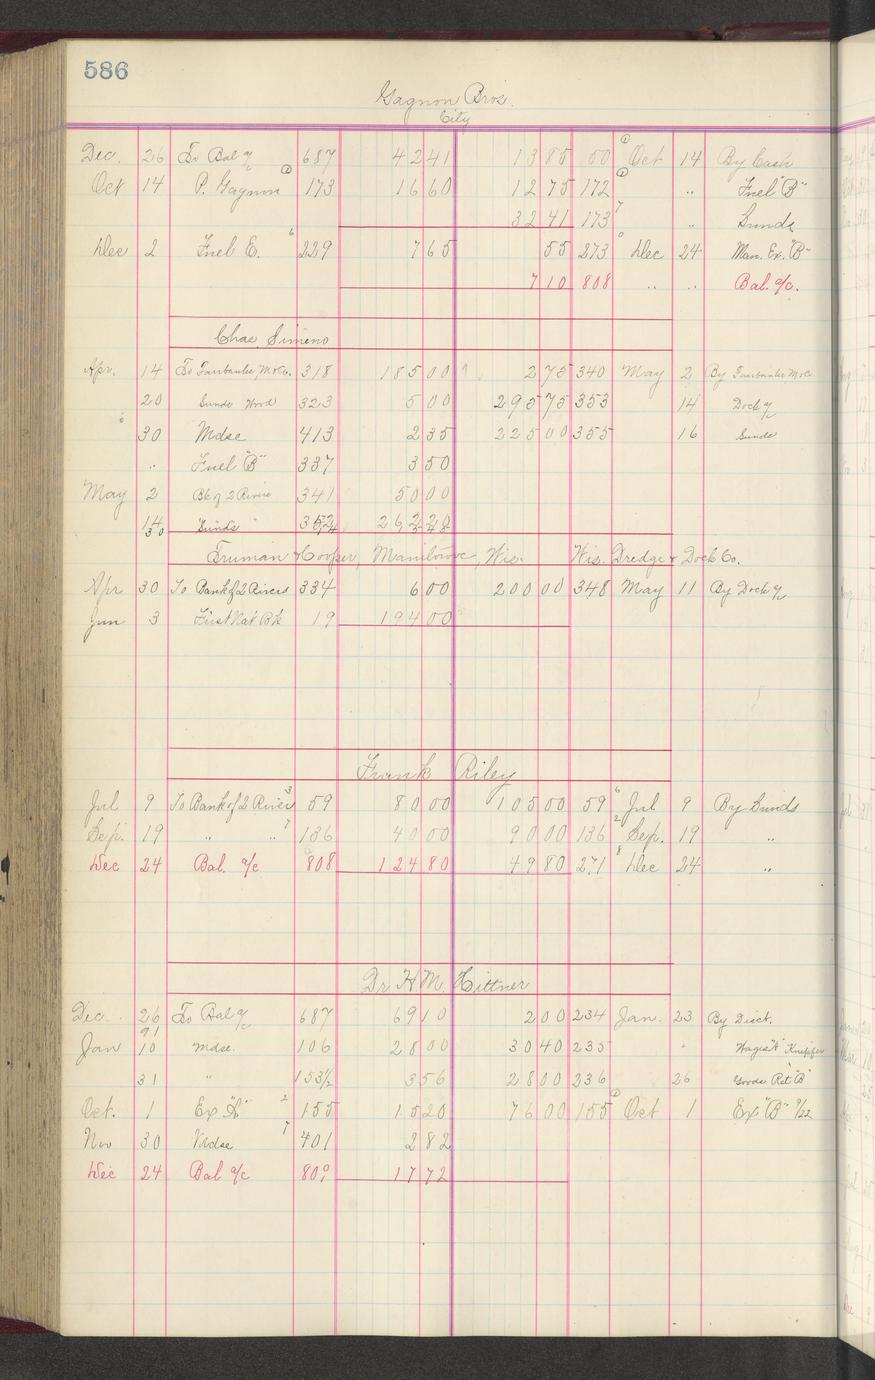 586
Gagnon Bros.
City
Dec. 26 To Bal a/c 687 42 41 13 85 50 Oct 14 By Cash
Oct 14 P. Gagnon 173 16 60 12 75 172 " Fuel "B"
32 41 173 " Sunds
Dec 2 Fuel E. 229 7 65 55 273 Dec 24 Man. Ex. "B"
7 10 808 " " Bal. a/c.
Chas. Simeno
Apr. 14 To Fairbanks, M & Co. 318 185 00 2 75 340 May 2 By Fairbanks M & C
20 Sunds Wood 323 5 00 295 75 353 14 Dock a/c
30 Mdse 413 2 35 225 00 355 16 Sunds
" Fuel "B" 337 3 50
May 2 Bk of 2 Rivers 341 50 00
14 Sunds "
30
Truman & Cooper, Manitowoc, Wis. Wis. Dredge & Dock Co.
Apr 30 To Bank of 2 Rivers 334 6 00 200 00 348 May 11 By Dock a/c
Jun 3 First Nat Bk 19 194 00
Frank Riley
Jul 9 To Bank of 2 Rivers 3 59 80 00 105 00 59 6 Jul 9 By Sunds
Sep. 19 " " 7 136 40 00 90 00 136 2 Sep. 19 "
Dec 24 Bal. a/c 808 124 80 49 80 271 8 Dec 24 "
Dr H. M. Hittner
Dec. 26 To Bal a/c 687 69 10 2 00 234 Jan. 23 By Disct.
91
Jan 10 Mdse. 106 28 00 30 40 235 " Wages "A" Knipfer
31 " 153½ 3 56 28 00 236 26 Goods Ret. "B"
Oct. 1 Ex "A" 2 155 15 20 76 00 155 Oct 1 Ex "B" 9/22
Nov 30 Mdse 7 401 2 82
Dec 24 Bal a/c 809 17 72